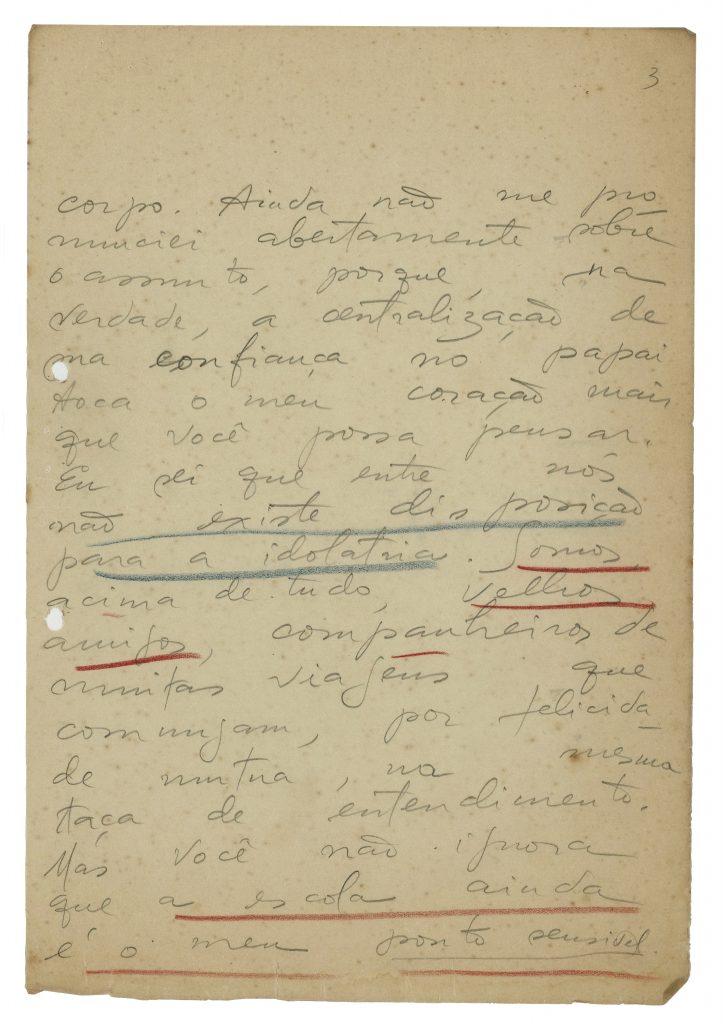 3
corpo. Ainda não me pro
nunciei abertamente sobre
o assunto, porque, na
verdade, a centralização de
ma confiança no papai
toca o meu coração mais
que você possa pensar.
Eu sei que entre nós
não existe disposição
para a idolatria. Somos,
acima de tudo, velhos
amigos, companheiros de
muitas viagens que
comungam, por felicida_
de mutua, na mesma
taça de entendimento.
Mas você não ignora
que a escola ainda
é o meu ponto sensivel.